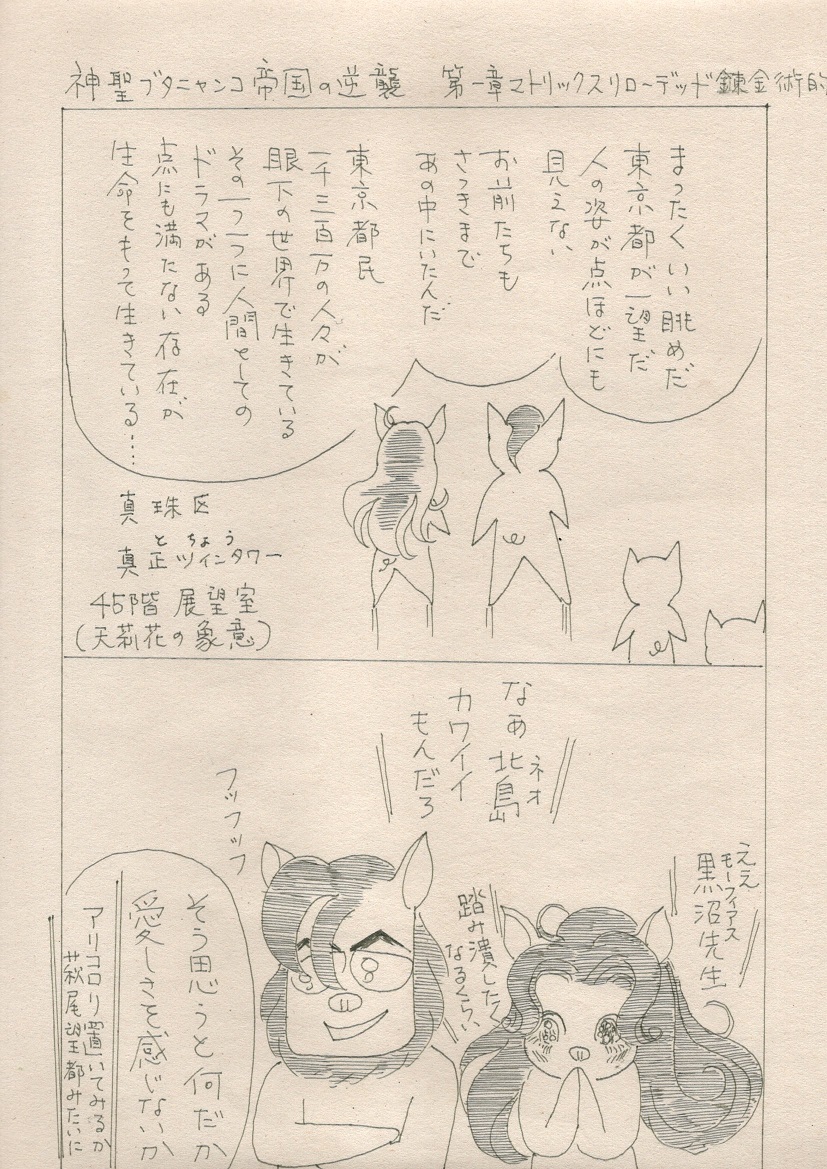 神聖ブタニャンコ帝国の逆襲　第一章マトリックスリローデッド錬金術的
まったくいい眺めだ
東京都が一望だ
人の姿が点ほどにも
見えない
お前たちも
さっきまで
あの中にいたんだ
東京都民
一千三百万の人々が
眼下の世界で生きている
その一つ一つに人間としての
ドラマがある
点にも満たない存在が
生命をもって生きている……
真珠区
とちょう
真正ツインタワー
45階 展望室
(天莉花の象意)
なあ北島
ネオ
カワイイ
もんだろ
ええ
モーフィアス
黒沼先生
踏み潰したく
なるくらい
フッフッフ
そう思うと何だか
愛しさを感じないか
アリコロリ置いてみるか
萩尾望都みたいに